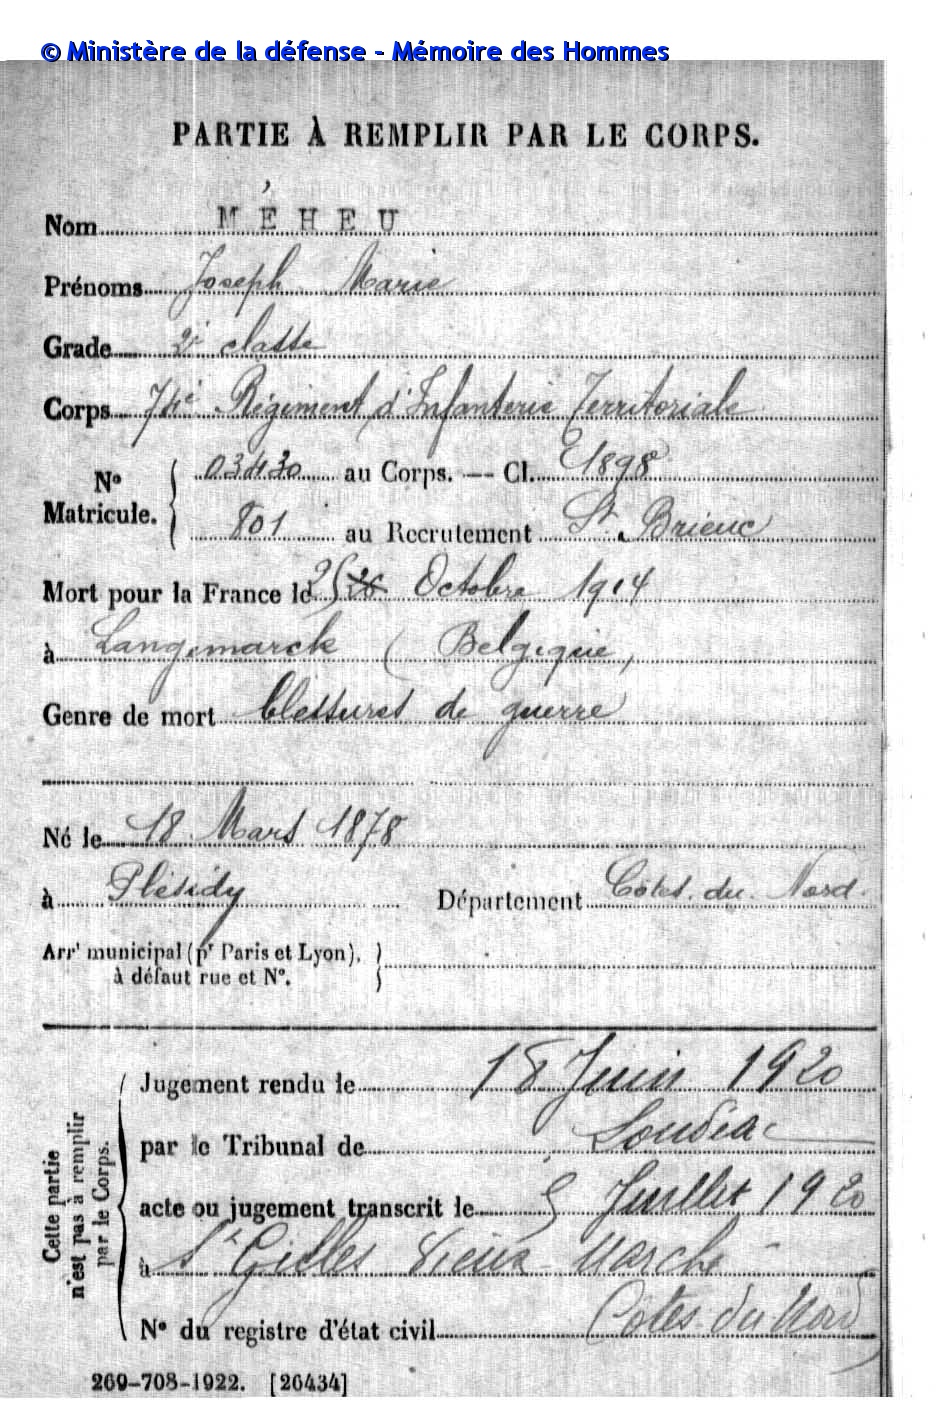 © Ministère de la défense - Mémoire des Hommes
PARTIE À REMPLIR PAR LE CORPS.
Nom MÉHEU
Prénoms Joseph Marie
Grade 2e classe
Corps 74e Régiment d'Infanterie Territoriale
No Matricule. { 03430 au Corps. — Cl. 1898
801 au Recrutement St Brieuc
Mort pour la France le 25 26 Octobre 1914
à Langemarck (Belgique)
Genre de mort blessures de guerre
Né le 18 Mars 1878
à Plésidy Département Côtes du Nord
Arrt municipal (pr Paris et Lyon),
à défaut rue et No.
Cette partie n'est pas à remplir par le Corps.
Jugement rendu le 18 Juin 1920
par le Tribunal de Loudéac
acte ou jugement transcrit le 5 Juillet 1920
à St Gilles Vieux Marché
(Côtes du Nord)
No du registre d'état civil
269-708-1922. [26434]